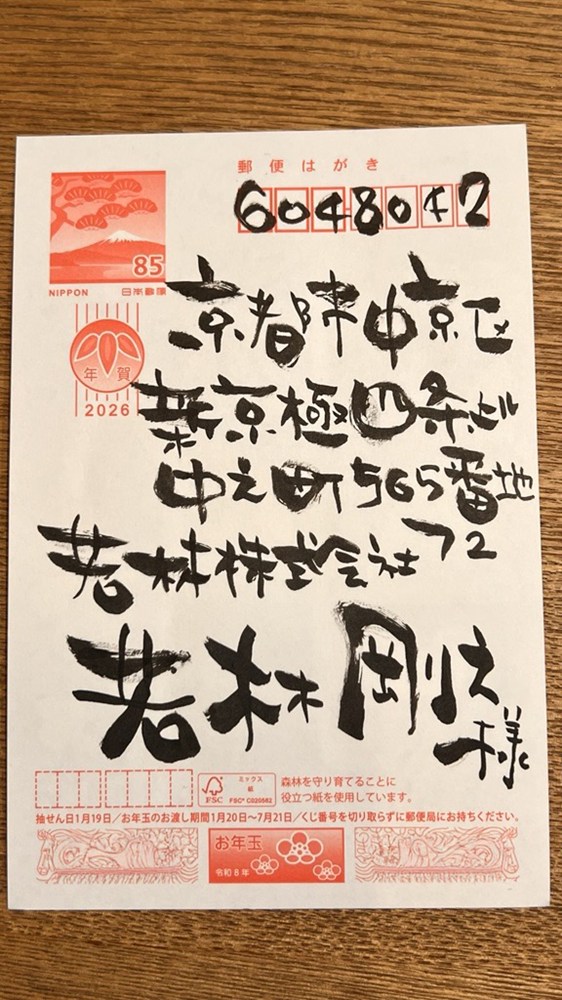 郵便はがき
6048042
85
NIPPON 日本郵便
京都市中京区
年賀
2026
新京極四条上ル
中之町565番地
72
若林株式会社
若林剛之
様
FSC
ミックス
紙
FSC® C020562
森林を守り育てることに
役立つ紙を使用しています。
抽せん日1月19日／お年玉のお渡し期間1月20日～7月21日／くじ番号を切り取らずに郵便局にお持ちください。
お年玉
令和8年